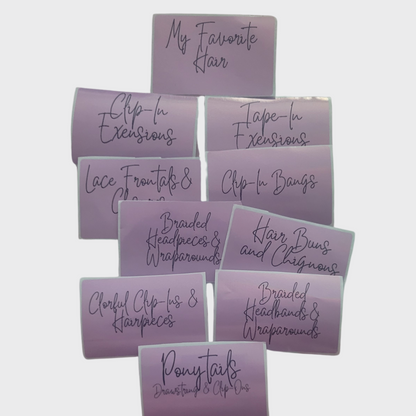 My Favorite
Hair
Clip-In
Exensions
Tape-In
Exensions
Lace Frontals &
Clip-In Bangs
Braided
Headpieces &
Wraparounds
Hair Buns
and Chignons
Clorful Clip-Ins &
Hairpieces
Braided
Headbands &
Wraparounds
Ponytails
Drawstring & Clip Ons